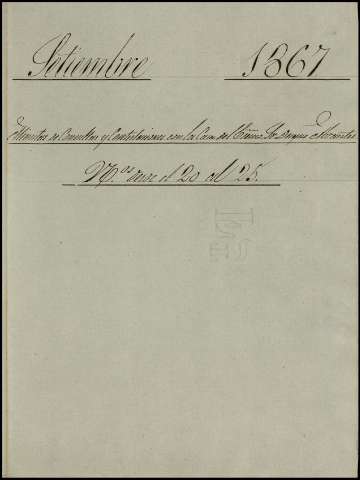 Setiembre 1867
Minutas de Consultas y Contestaciones con la Casa del Excmo. Sr. Duque de
N.os desde el 20 al 25.